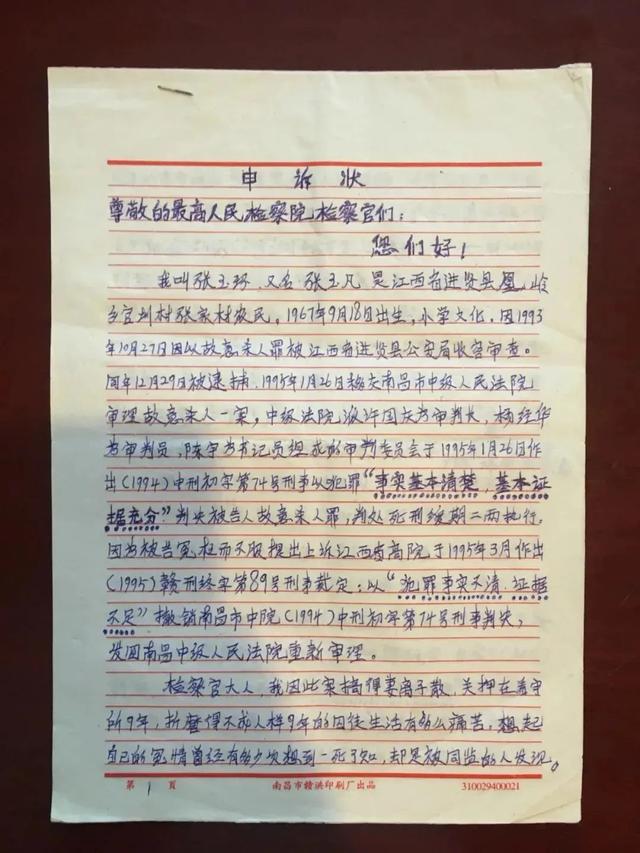 申诉状
尊敬的最高人民检察院检察官们：
您们好！
我叫张玉环，又名张玉凡是江西省进贤县凰岭
乡官圳村张家村农民，1967年9月18日出生，小学文化，因1993
年10月27日因以故意杀人罪被江西省进贤县公安局收容审查。
同年12月29日被逮捕，1995年1月26日移交南昌市中级人民法院
审理故意杀人一案，中级法院派许国庆为审判长，杨经华
为审判员，陈宇为书记员组成的审判委员会于1995年1月26日作
出(1994)中刑初字第74号刑事以犯罪“事实基本清楚，基本证
据充分”判决被告人故意杀人罪，判处死刑缓期二两执行。
因为被告冤枉而不服提出上诉江西省高院于1995年3月作出
(1995)赣刑终字第89号刑事裁定：以“犯罪事实不清，证据
不足”撤销南昌市中院(1994)中刑初字第74号刑事判决，
发回南昌中级人民法院重新审理。
检察官大人，我因此案搞得妻离子散，关押在看守
所9年，折磨得不成人样9年的囚徒生活有多么痛苦，想起
自己的冤情曾经有多少次想到一死了知，却是被同监的人发现。
第 1 页
南昌市赣洪印刷厂出品
310029400021